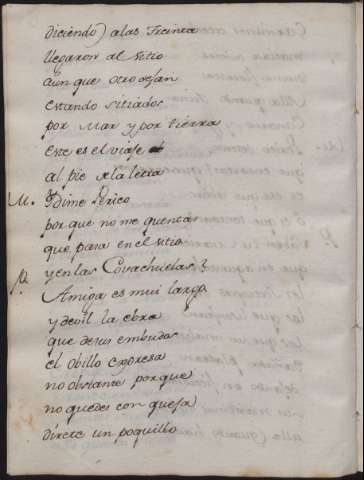 diciendo) alas Treinta
llegaron al Sitio
aunque otro dejan
estando sitiados
por Mar y por tierra
este es el viaje
al pie dela letra
M. Dime Perico
por que no me quentas
que pasa en el sitio
y en las Covachuelas?
P. Amiga es mui larga
y devil la ebra
que de sus embudos
el Obillo expresa
no obstante porque
no quedes con quexa
direte un poquillo